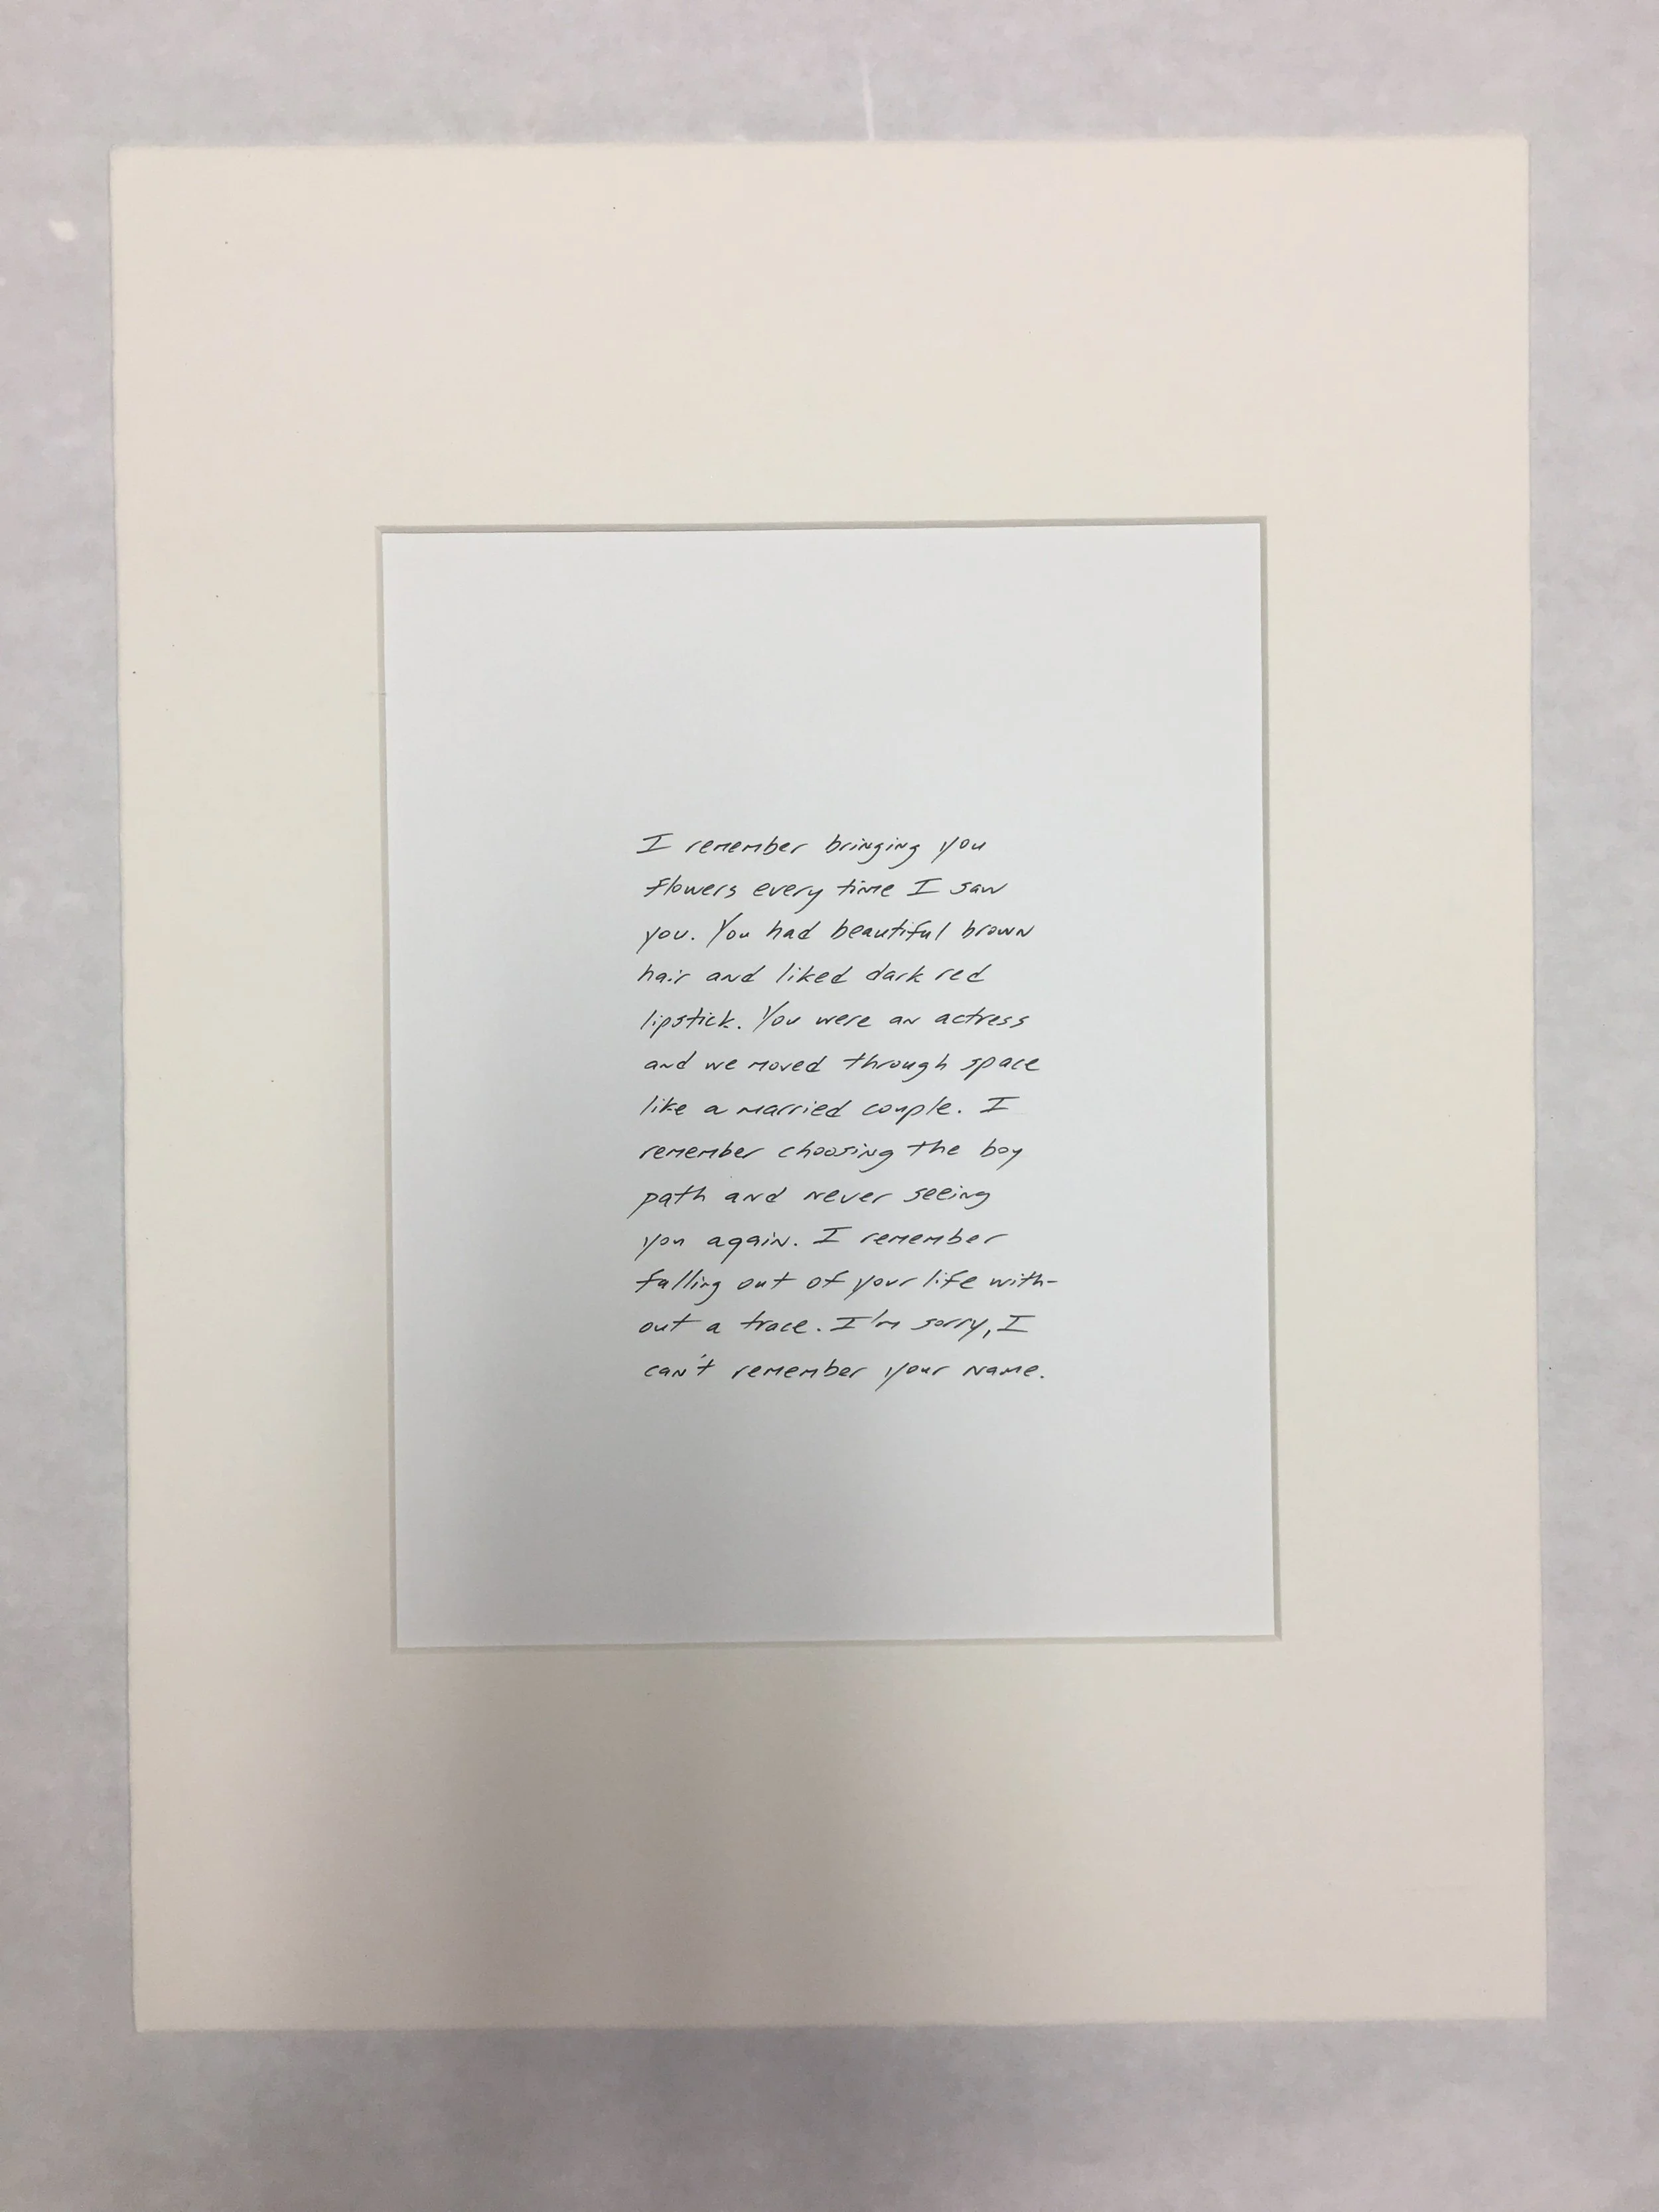 I remember bringing you
flowers every time I saw
you. You had beautiful brown
hair and liked dark red
lipstick. You were an actress
and we moved through space
like a married couple. I
remember choosing the boy
path and never seeing
you again. I remember
falling out of your life with-
out a trace. I'm sorry, I
can't remember your name.